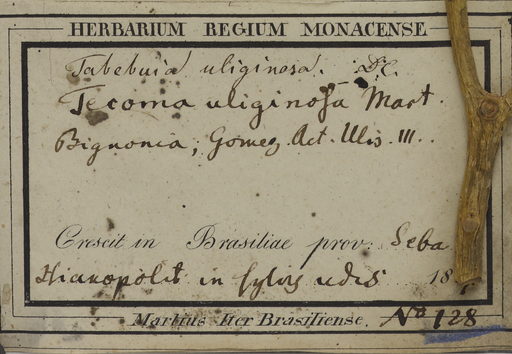 HERBARIUM REGIUM MONACENSE
Tabebuia uliginosa. DC.
Tecoma uliginosa Mart.
Bignonia, Gomez. Act. Ulis. III.
Crescit in Brasiliae prov: Seba
stianopolit in sylvis udis 18
Martius Iter Brasiliense. No 128